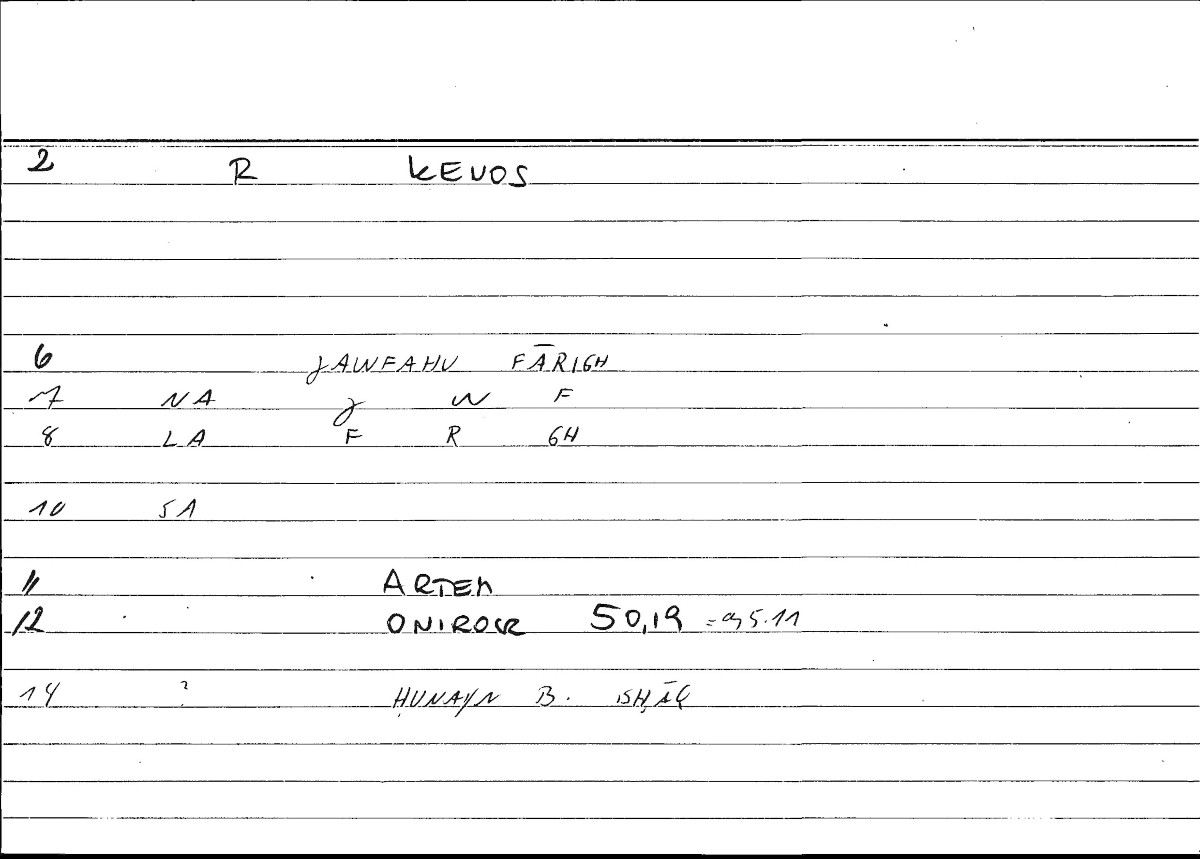 2 R KEVOS
6 JAWFAHU FĀRIGH
7 NA J W F
8 LA F R GH
10 SA
11 ARTEM
12 ONIROCR 50,19 = 5.11
14 ? ḤUNAYN B. ISḤĀQ